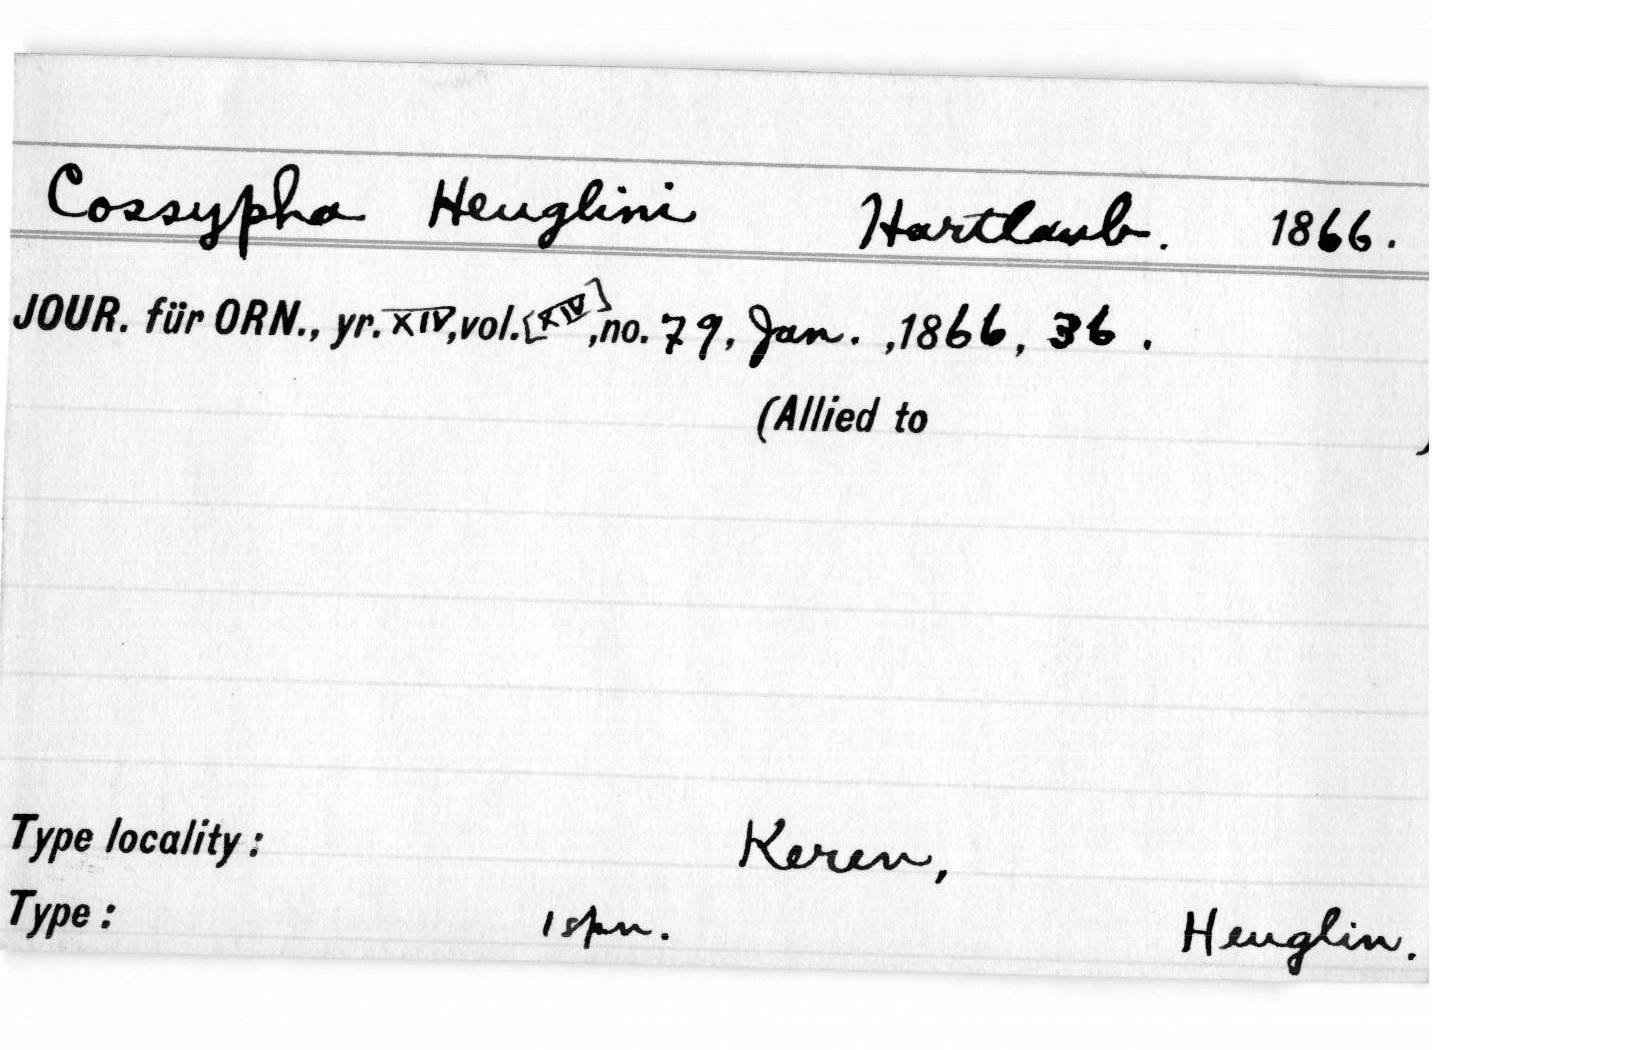 Cossypha Heuglini Hartlaub. 1866.
JOUR. für ORN., yr. XIV, vol. [XIV], no. 79, Jan. , 1866, 36 .
(Allied to )
Type locality : Keren,
Type : 1 spn. Heuglin.